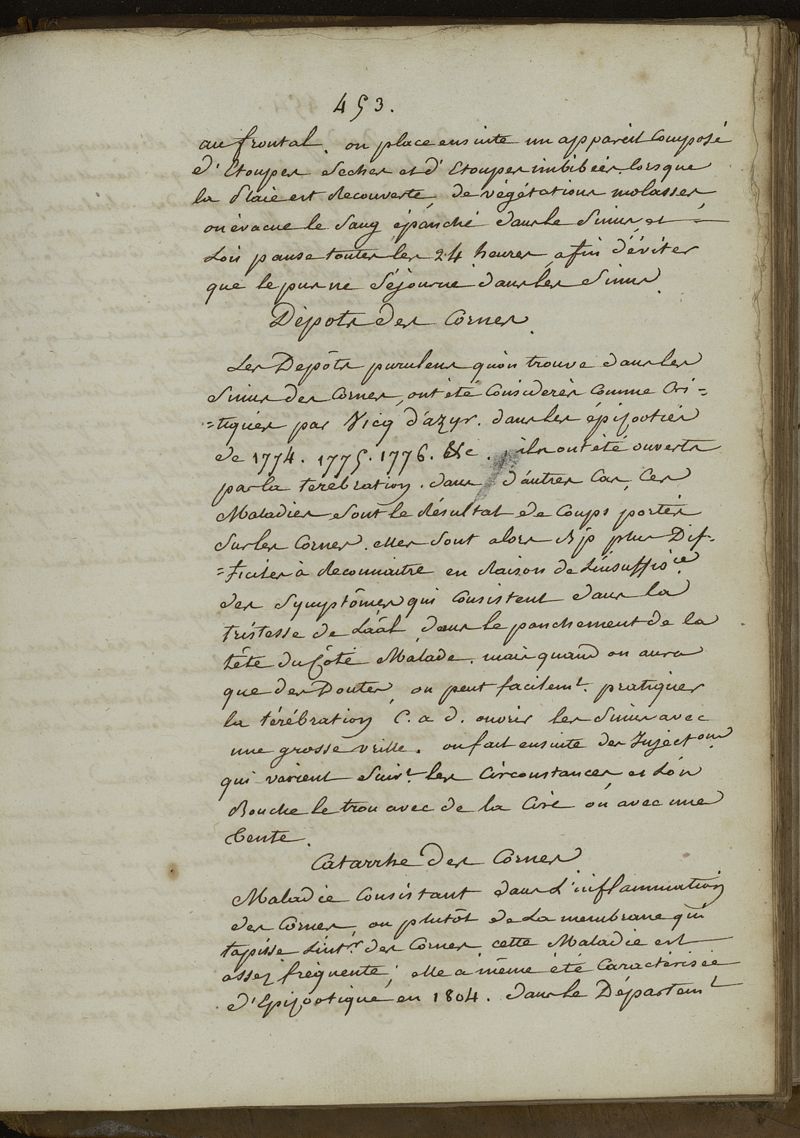 453.
au frontal. on place ensuite un appareil Composé
d'Etoupes Seches et d'Etoupes imbibées. lorsque
la Plaie est decouverte de végétations molasses
on évacue le Sang épanché dans le Sinus, et
Lon panse toutes les 24 heures, afin d'éviter
que le pus ne Séjourne dans les Sinus.
Dépots des Cornes.
Les Depôts purulens qu'on trouve dans les
Sinus des Cornes, ont été Considerés Comme Cri=
=tiques par Vicq d'azyr. dans les épizooties
de 1774. 1775. 1776. &c. ils ont été ouverts
par la térébration. dans d'autres Cas, Ces
Maladies sont le résultat de Coups portés
Sur les Cornes. elles sont alors plus Dif=
=ficiles à Reconnaitre en Raison de L'insuffisce
des Symptômes qui Consistent dans la
tristesse de Laâl, dans le penchement de la
tête du Côté Malade. mais quand on aura
que des Doutes, on peut facilemt. pratiquer
la térébration C. a d. ouvrir les Sinus avec
une grosse vrille. on fait ensuite des Injectons
qui varient Suivt. les Circonstances et Lón
Bouche le trou avec de la Cire oú avec une
tente.
Catarrhe des Cornes
Maladie Consistant dans L'inflammation
des Cornes, ou plutôt de La membrane qui
tapisse L'intr. des Cornes, cette Maladie est
assez fréquente; elle a même été Caractérisée
d'Epizootique en 1804. dans le Départemt